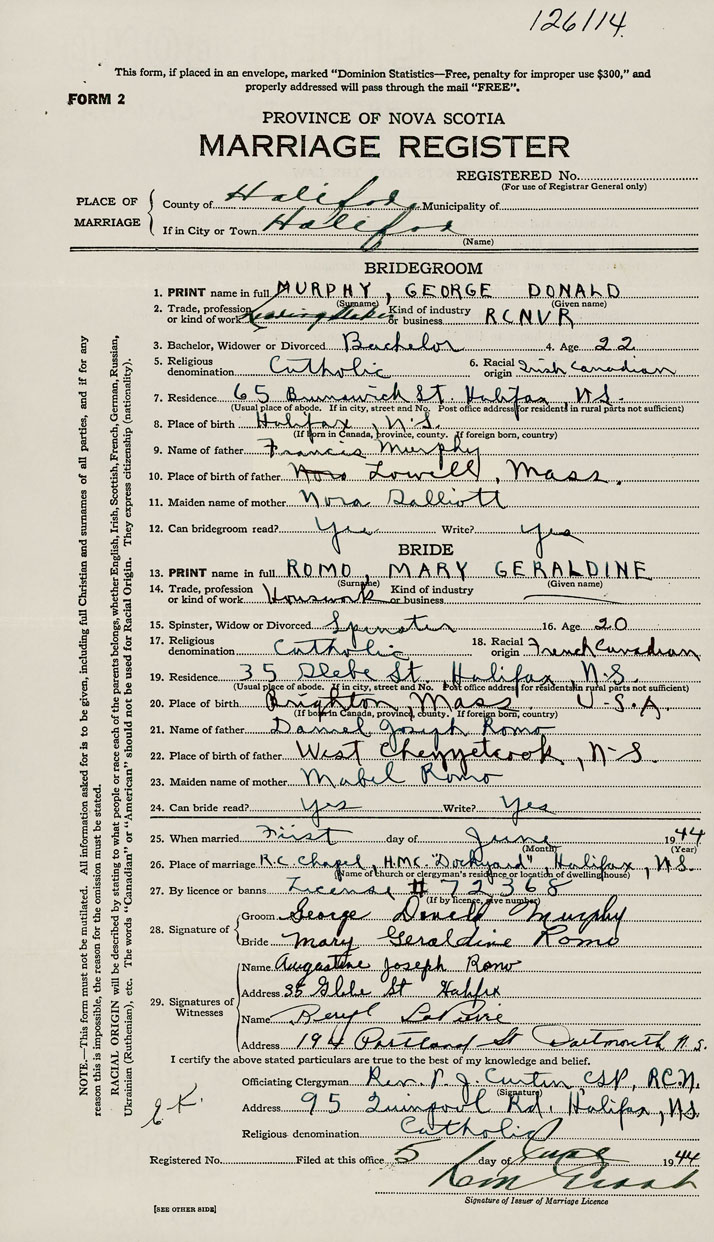 126114
This form, if placed in an envelope, marked "Dominion Statistics—Free, penalty for improper use $300," and
properly addressed will pass through the mail "FREE".
FORM 2
PROVINCE OF NOVA SCOTIA
MARRIAGE REGISTER
REGISTERED No.
(For use of Registrar General only)
PLACE OF MARRIAGE
County of Halifax Municipality of
If in City or Town Halifax
(Name)
BRIDEGROOM
1. PRINT name in full MURPHY, GEORGE DONALD
(Surname) (Given name)
2. Trade, profession or kind of work Leading Stoker Kind of industry or business RCNVR
3. Bachelor, Widower or Divorced Bachelor 4. Age 22
5. Religious denomination Catholic 6. Racial origin Irish Canadian
7. Residence 65 Brunswick St. Halifax, N.S.
(Usual place of abode. If in city, street and No. Post office address for residents in rural parts not sufficient)
8. Place of birth Halifax, N.S.
(If born in Canada, province, county. If foreign born, country)
9. Name of father Francis Murphy
10. Place of birth of father Lowell, Mass.
11. Maiden name of mother Nora
12. Can bridegroom read? Yes Write? Yes
BRIDE
13. PRINT name in full ROMO, MARY GERALDINE
(Surname) (Given name)
14. Trade, profession or kind of work Housework Kind of industry or business
15. Spinster, Widow or Divorced Spinster 16. Age 20
17. Religious denomination Catholic 18. Racial origin French Canadian
19. Residence 35 Glebe St. Halifax, N.S.
(Usual place of abode. If in city, street and No. Post office address for residents in rural parts not sufficient)
20. Place of birth Brighton, Mass. U-S.A.
(If born in Canada, province, county. If foreign born, country)
21. Name of father Daniel Joseph Romo
22. Place of birth of father West Chezzetcook, N-S.
23. Maiden name of mother Mabel Romo
24. Can bride read? Yes Write? Yes
25. When married First day of June 1944
(Month) (Year)
26. Place of marriage R.C. Chapel, H.M.C. "Dockyard" Halifax, N.S.
(Name of church or clergyman's residence or location of dwelling house)
27. By licence or banns License # 72368
(If by licence, give number)
28. Signature of
Groom George Donald Murphy
Bride Mary Geraldine Romo
29. Signatures of Witnesses
Name Augustine Joseph Romo
Address 35 Glebe St Halifax
Name Beryl
Address 194 Portland St Dartmouth N.S.
I certify the above stated particulars are true to the best of my knowledge and belief.
Officiating Clergyman Rev. P. J. Curtin CSP, RCN.
(Signature)
Address 95 Quinpool Rd. Halifax, N.S.
Religious denomination Catholic
Registered No. Filed at this office 5 day of June 1944
Signature of Issuer of Marriage Licence
[SEE OTHER SIDE]
NOTE.—This form must not be mutilated. All information asked for is to be given, including full Christian and surnames of all parties, and if for any
reason this is impossible, the reason for the omission must be stated.
RACIAL ORIGIN will be described by stating to what people or race each of the parents belongs, whether English, Irish, Scottish, French, German, Russian,
Ukrainian (Ruthenian), etc. The words "Canadian" or "American" should not be used for Racial Origin. They express citizenship (nationality).